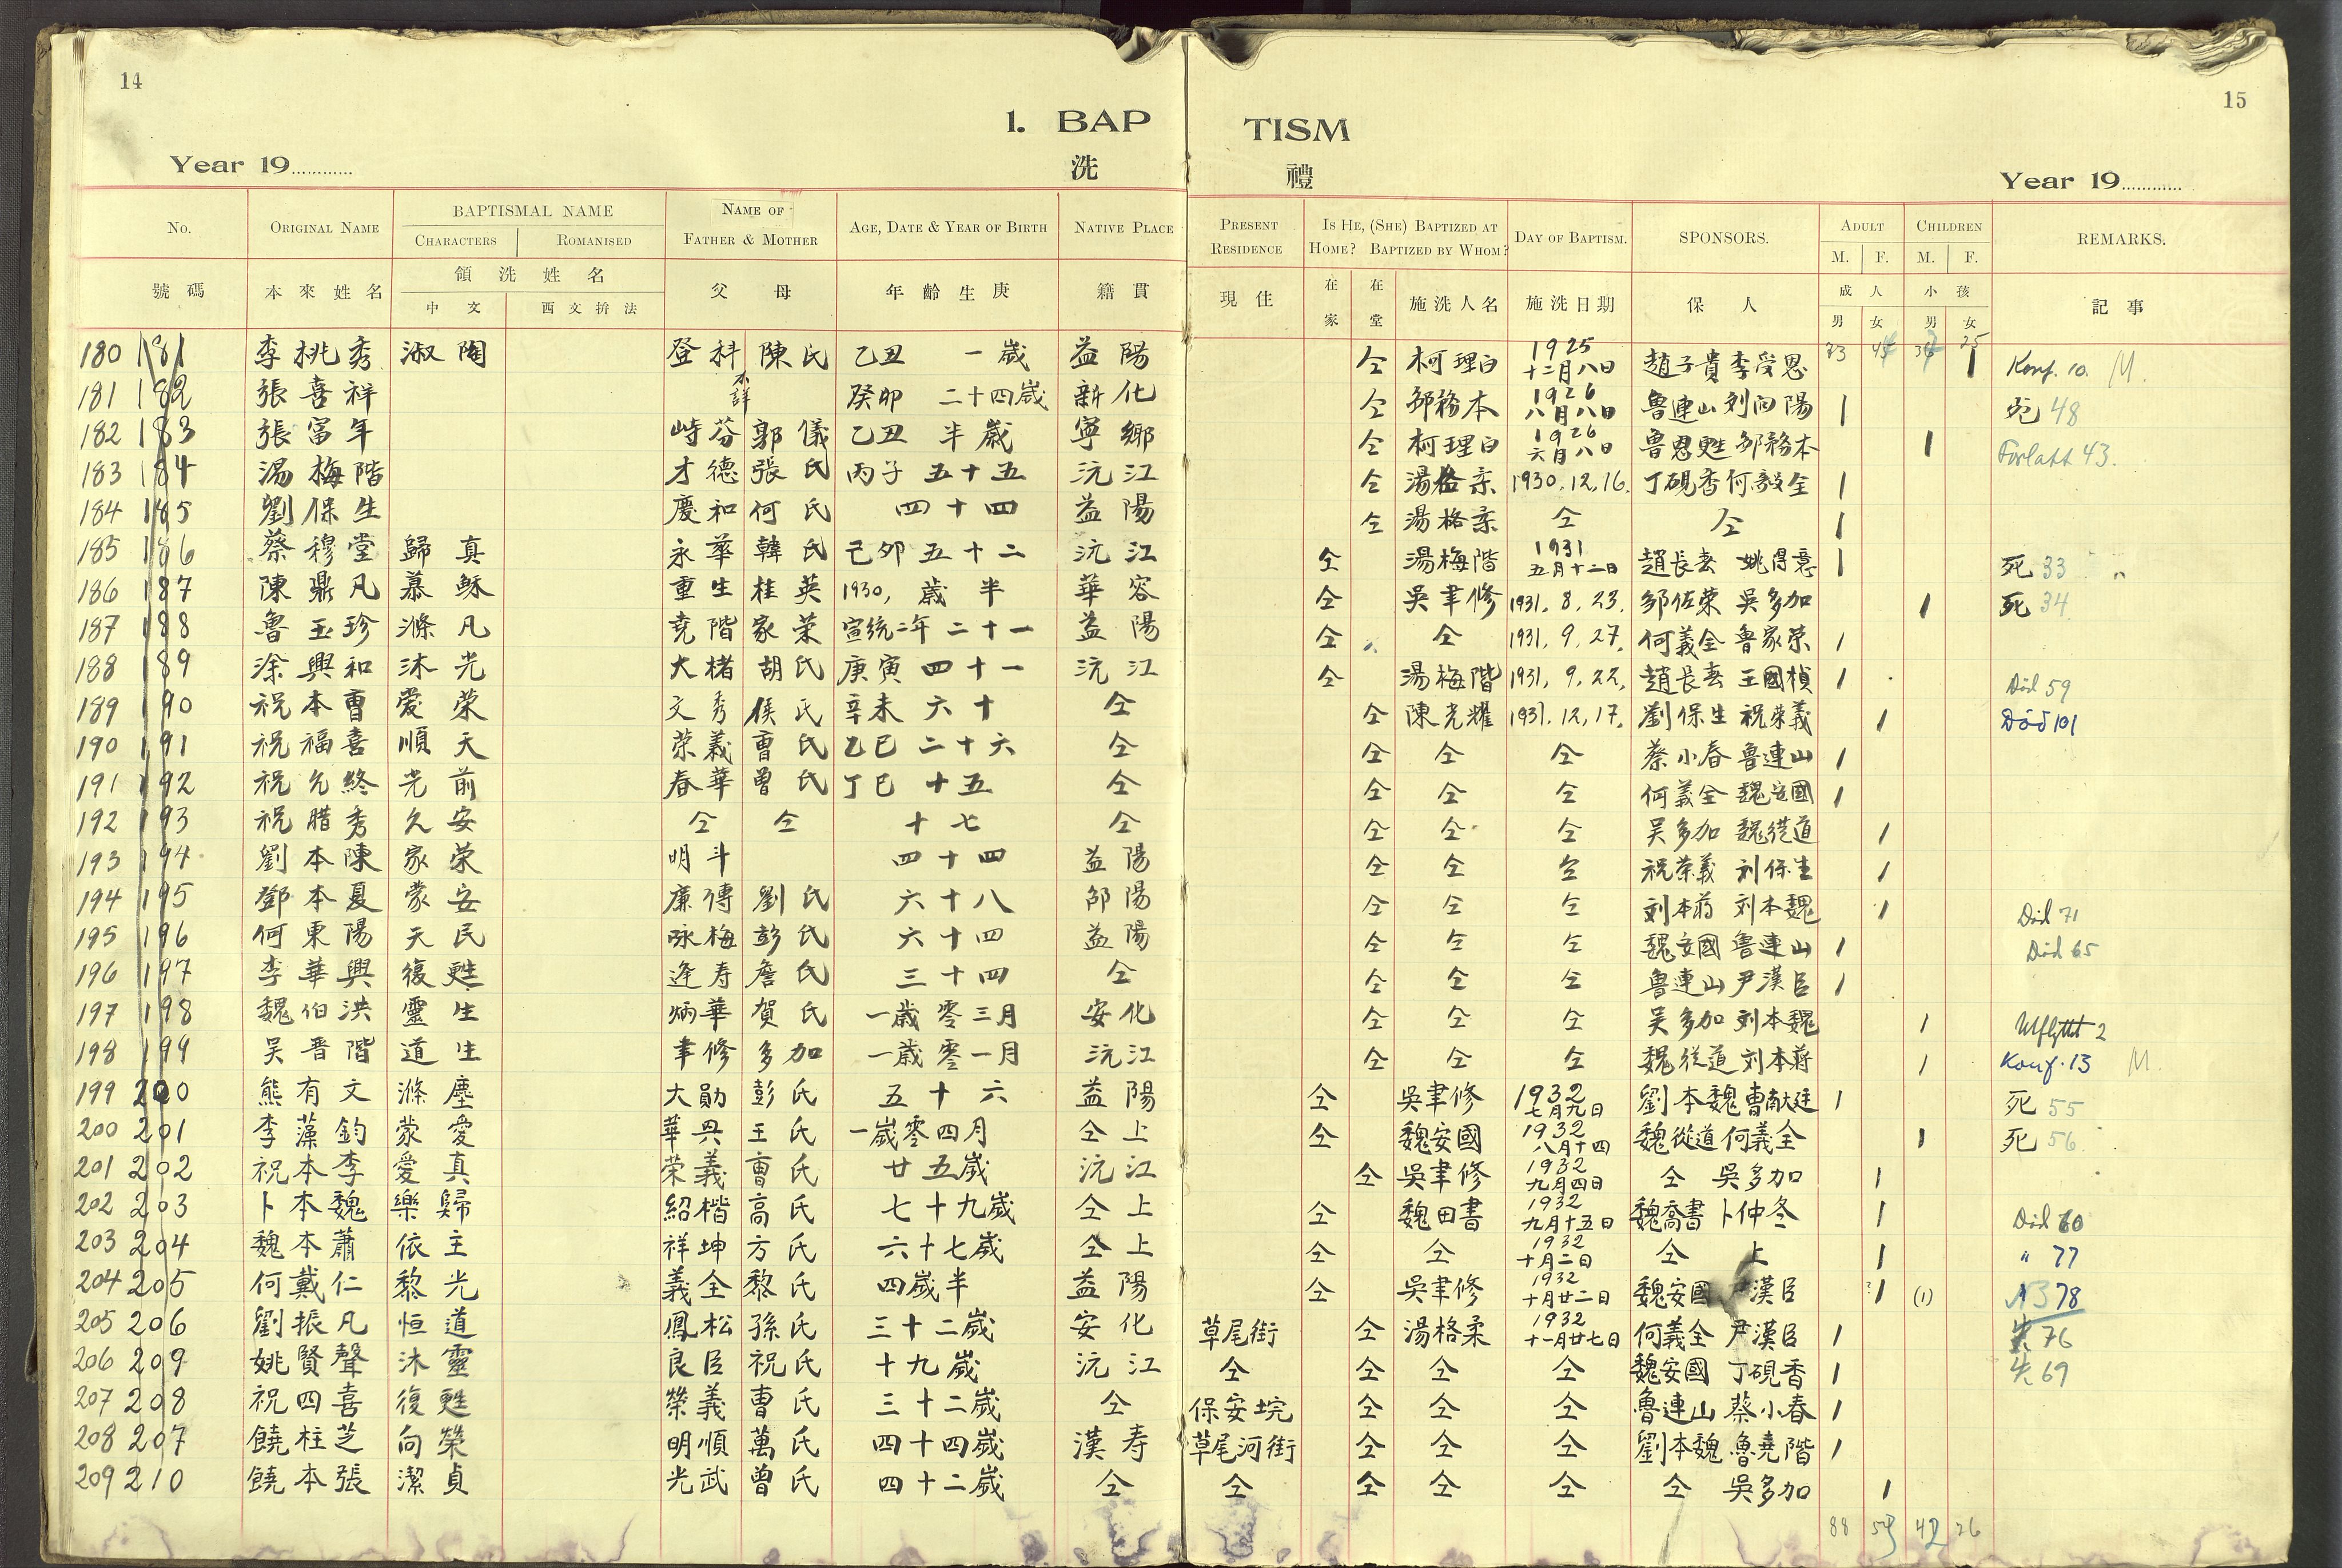 14
15
1. BAP TISM
洗 禮
Year 19............ Year 19............
No. ORIGINAL NAME BAPTISMAL NAME CHARACTERS ROMANISED NAME OF FATHER & MOTHER AGE, DATE & YEAR OF BIRTH NATIVE PLACE PRESENT RESIDENCE IS HE, (SHE) BAPTIZED AT HOME? BAPTIZED BY WHOM? DAY OF BAPTISM. SPONSORS. ADULT M. F. CHILDREN M. F. REMARKS.
號碼 本來姓名 領洗姓名 中文 西文拚法 父 母 年齡生庚 籍貫 現住 在家 在堂 施洗人名 施洗日期 保人 成人 男 女 小孩 男 女 記事
180 181 李桃秀 淑陶 登科 陳氏 乙丑 一歲 益陽 仝 柯理白 1925 十二月八日 趙子貴 李受恩 1 Konf. 10. M.
181 182 張喜祥 不詳 癸卯 二十四歲 新化 仝 鄒務本 1926 八月八日 魯連山 刘向陽 1 死 48
182 183 張富年 峙芬 郭儀 乙丑 半歲 寧鄉 仝 柯理白 1926 六月八日 魯恩甦 鄒務本 1 Förlatt 43
183 184 湯梅階 才德 張氏 丙子 五十五 沅江 仝 湯格柔 1930.12.16. 丁硯香 何毅全 1
184 185 劉保生 慶和 何氏 四十四 益陽 仝 湯格柔 仝 仝 1
185 186 蔡穆堂 歸真 永華 韓氏 己卯 五十二 沅江 仝 湯梅階 1931 五月十二日 趙長春 姚得意 1 死 33
186 187 陳鼎凡 慕穌 重生 桂英 1930, 歲半 華容 仝 吳聿修 1931. 8. 23. 鄒佐荣 吳多加 1 死 34
187 188 魯玉珍 滌凡 堯階 家荣 宣統二年 二十一 益陽 仝 仝 1931. 9. 27. 何義全 魯家荣 1
188 189 涂興和 沐光 大楮 胡氏 庚寅 四十一 沅江 仝 湯梅階 1931. 9. 22. 趙長春 王國楨 1 Död 59
189 190 祝本曹 愛荣 文秀 侯氏 辛未 六十 仝 仝 陳光耀 1931. 12, 17. 劉保生 祝荣義 1 Död 101
190 191 祝福喜 順天 荣義 曹氏 乙巳 二十六 仝 仝 仝 仝 蔡小春 魯連山 1
191 192 祝允終 光前 春華 曾氏 丁巳 十五 仝 仝 仝 仝 何義全 魏安國 1
192 193 祝腊秀 久安 仝 仝 十七 仝 仝 仝 仝 吴多加 魏從道 1
193 194 劉本陳 家荣 明斗 四十四 益陽 仝 仝 仝 祝荣義 刘保生 1
194 195 鄧本夏 蒙安 廉傳 劉氏 六十八 邵陽 仝 仝 仝 刘本蔣 刘本魏 1 Död 71
195 196 何東陽 天民 咏梅 彭氏 六十四 益陽 仝 仝 仝 魏安國 魯連山 1 Död 65
196 197 李華興 復甦 逢寿 詹氏 三十四 仝 仝 仝 仝 魯連山 尹漢臣 1
197 198 魏伯洪 靈生 炳華 賀氏 一歲零三月 安化 仝 仝 仝 吴多加 刘本魏 1 Utflyttt 2
198 199 吴晋階 道生 聿修 多加 一歲零一月 沅江 仝 仝 仝 魏從道 刘本蔣 1 Konf. 13 M.
199 200 熊有文 滌塵 大勛 彭氏 五十六 益陽 仝 吳聿修 1932 七月九日 劉本魏 曹献廷 1 死 55
200 201 李藻鈞 蒙愛 華興 王氏 一歲零四月 仝上 仝 魏安國 1932 八月十四 魏從道 何義全 1 死 56
201 202 祝本李 愛真 荣義 曹氏 廿五歲 沅江 仝 吳聿修 1932 九月四日 仝 吳多加 1
202 203 卜本魏 樂歸 紹楷 高氏 七十九歲 仝上 仝 魏田書 1932 九月十五日 魏喬書 卜仲冬 1 Död 60
203 204 魏本蕭 依主 祥坤 方氏 六十七歲 仝上 仝 仝 1932 十月二日 仝 上 1 " 77
204 205 何戴仁 黎光 義全 黎氏 四歲半 益陽 仝 吳聿修 1932 十月廿二日 魏安國 尹漢臣 1 (1) 78
205 206 劉振凡 恒道 鳳松 孫氏 三十二歲 安化 草尾街 仝 湯格柔 1932 十一月廿七日 何義全 尹漢臣 1 失 76
206 209 姚賢聲 沐靈 良臣 祝氏 十九歲 沅江 仝 仝 仝 仝 魏安國 丁硯香 1 失 69
207 208 祝四喜 復甦 榮義 曹氏 三十二歲 仝 保安垸 仝 仝 仝 魯連山 蔡小春 1
208 207 饒柱芝 向榮 明順 萬氏 四十四歲 漢寿 草尾河街 仝 仝 仝 劉本魏 魯堯階 1
209 210 饒本張 潔貞 光武 曾氏 四十二歲 仝 仝 仝 仝 仝 仝 吳多加 1
88 42 26